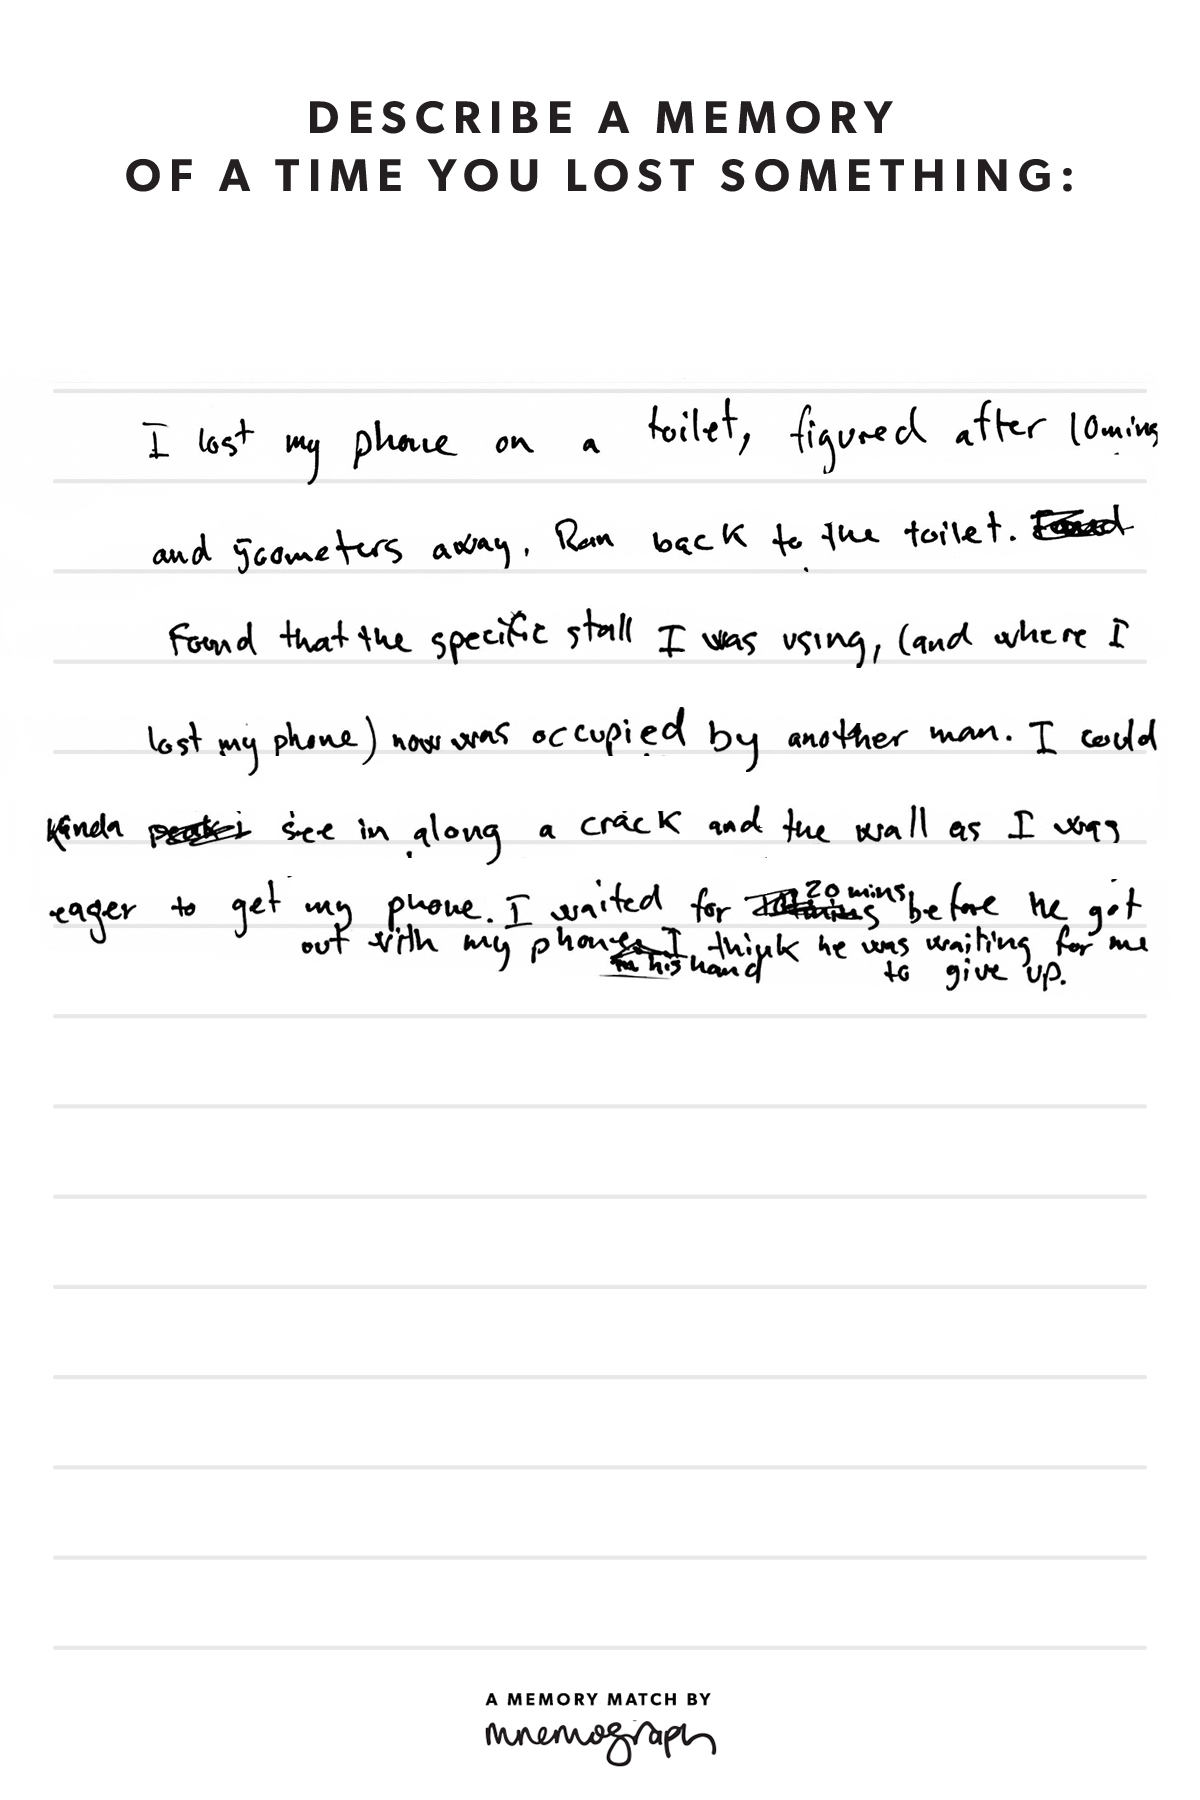 DESCRIBE A MEMORY
OF A TIME YOU LOST SOMETHING:
I lost my phone on a toilet, figured after 10mins
and 500meters away. Ran back to the toilet.
Found that the specific stall I was using, (and where I
lost my phone) now was occupied by another man. I could
kinda see in along a crack and the wall as I was
eager to get my phone. I waited for 20 mins before he got
out with my phone in his hand I think he was waiting for me
to give up.
A MEMORY MATCH BY
mnemograph